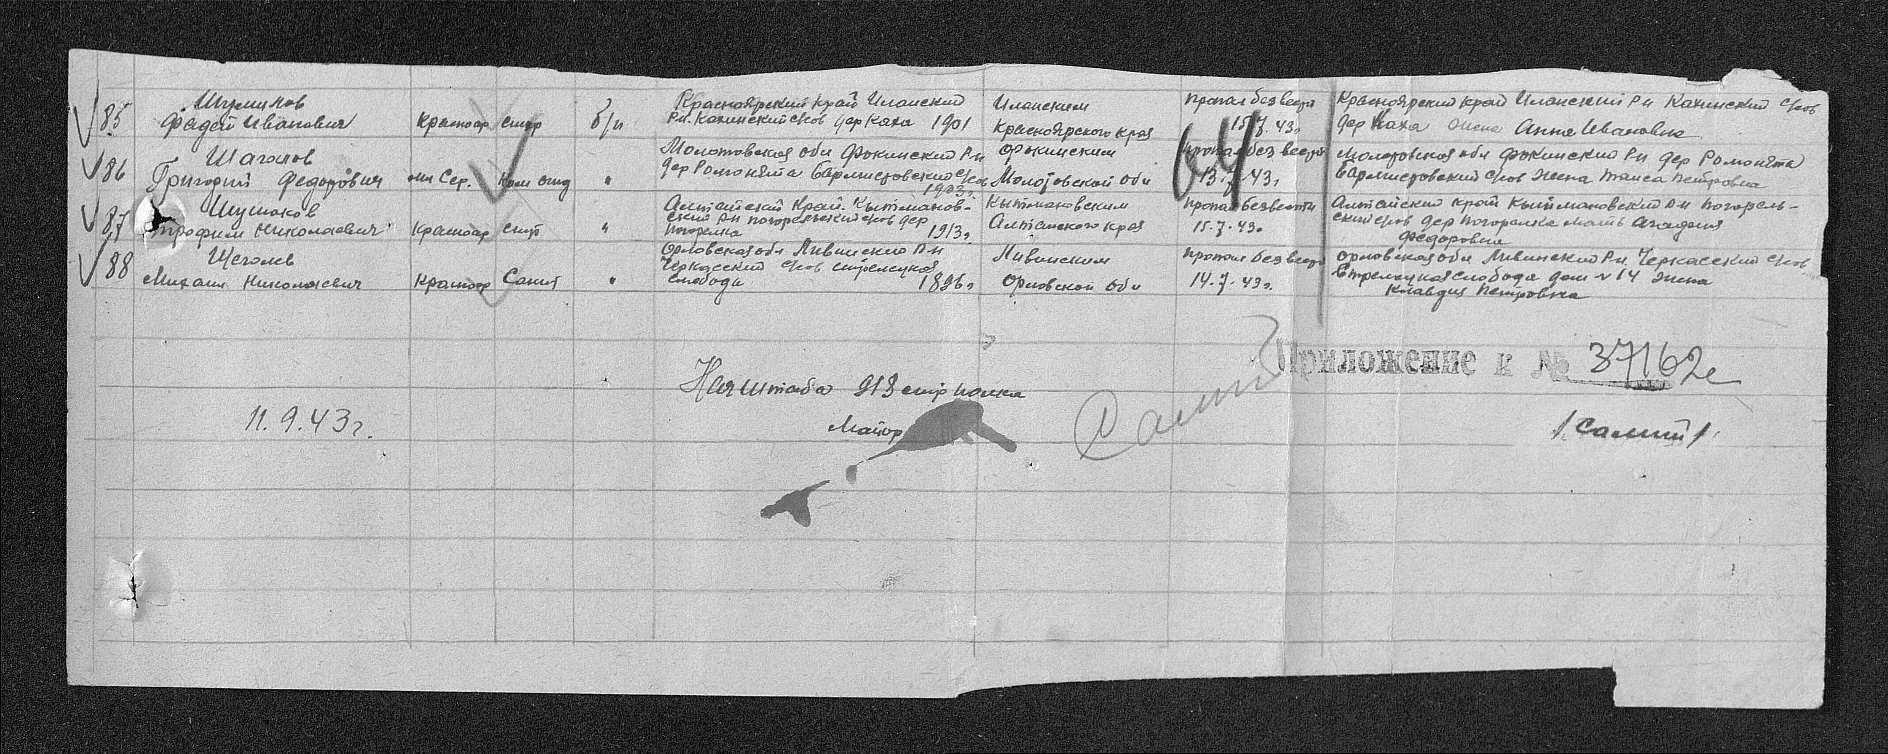 85 Шумилов Фадей Иванович красноар стр б/п Красноярский край Иланский Р.н. Канинский с/сов дер Каха 1901 Иланским Красноярского края пропал без вести 15.7.43г Красноярский край Иланский Р.н Канинский с/сов дер Каха жена Анна Ивановна
86 Шаголов Григорий Федорович мл Сер. Ком отд " Молотовская обл Фокинский Р.н дер Романята Бармистовский с/сов 1903г Фокинским Молотовской обл пропал без вести 13.7.43г Молотовская обл Фокинский Р.н дер Романята Бармистовский с/сов жена Таиса Петровна
87 Шушаков Трофим Николаевич Красноар стр " Алтайский край Кытмановский Р.н Погорельский с/сов дер Погорелка 1913г Кытмановским Алтайского края пропал без вести 15.7.43г Алтайский край Кытмановский Р.н Погорельский с/сов дер Погорелка мать Федоровна
88 Щеголев Михаил Николаевич Красноар Санит " Орловская обл Ливинский Р.н Черкасский с/сов стрелецкая слобода 1896г Ливинским Орловской обл пропал без вести 14.7.43г Орловская обл Ливинский Р.н. Черкасский с/сов Стрелецкая слобода дом № 14 жена Клавдия Петровна
64
Приложение к № 37162с
Нач штаба 918 стр полка
11.9.43г.
Майор
/Салий/